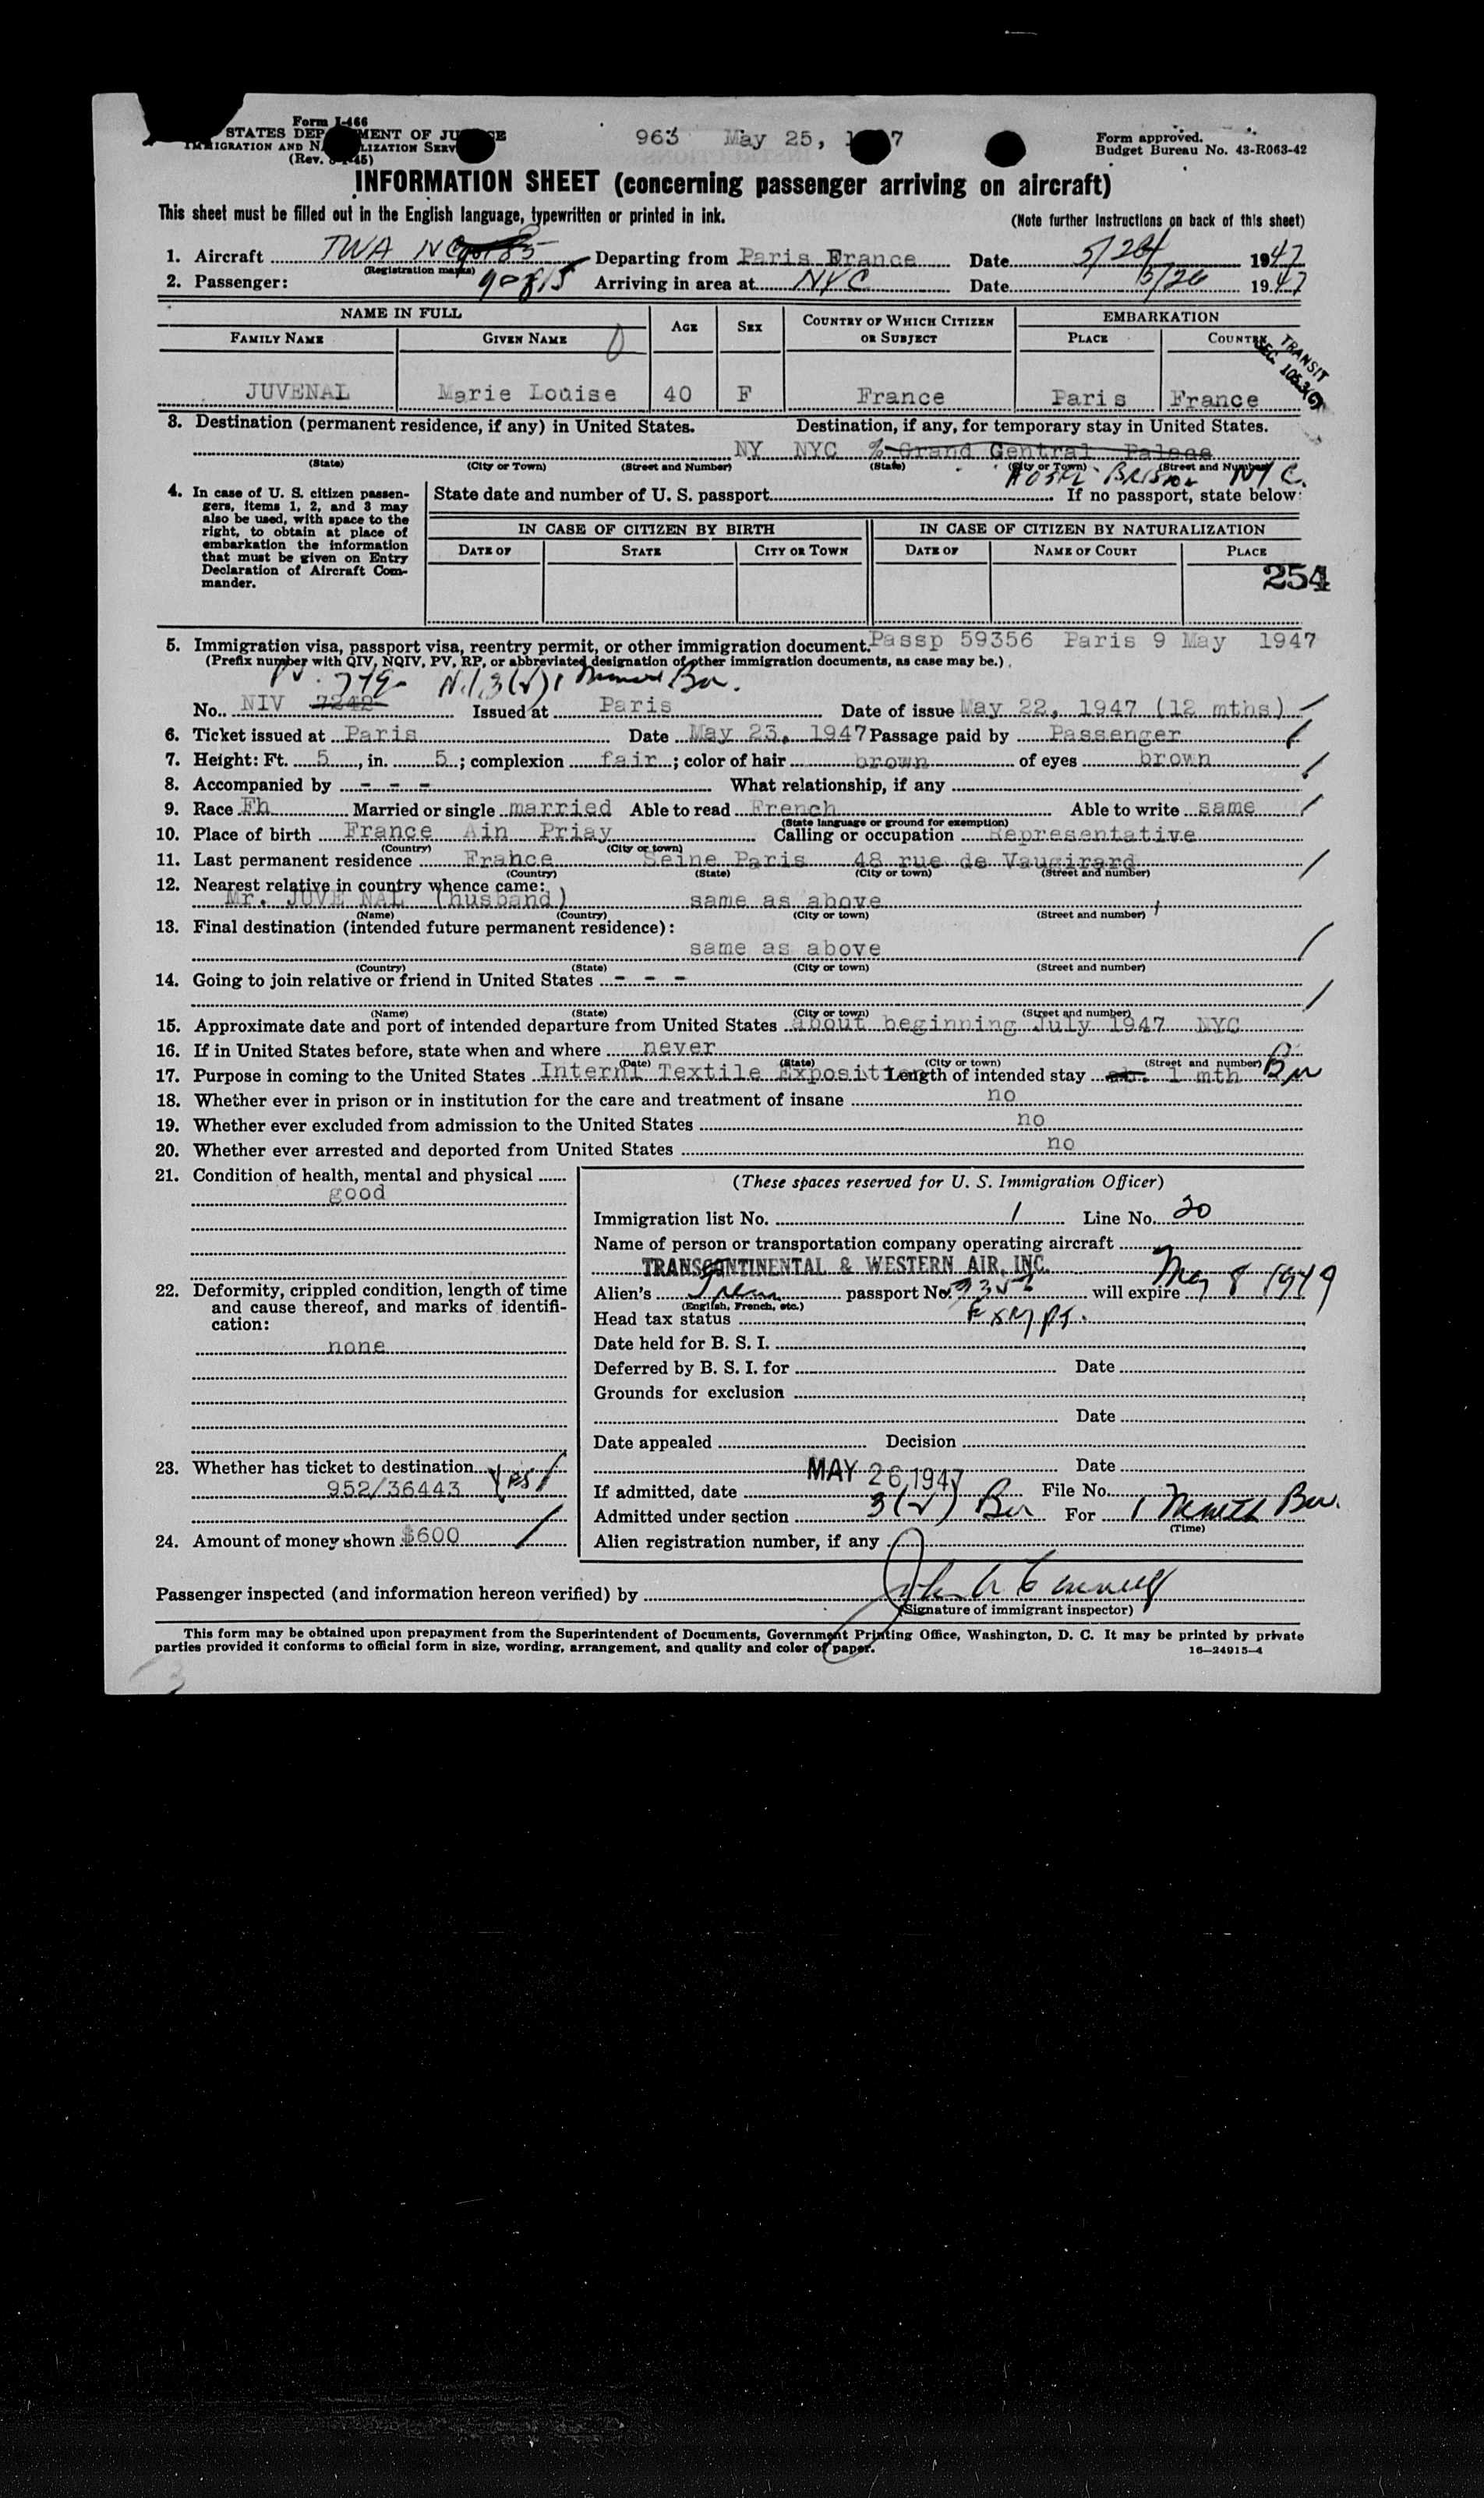 Form I-466
STATES DEP MENT OF JU CE
IMMIGRATION AND N LIZATION SERV
(Rev. 45)
963 May 25, 1 7
Form approved.
Budget Bureau No. 43-R063-42
INFORMATION SHEET (concerning passenger arriving on aircraft)
This sheet must be filled out in the English language, typewritten or printed in ink.
(Note further Instructions on back of this sheet)
1. Aircraft TWA NC Departing from Paris France Date 5/24 1947
(Registration marks)
2. Passenger: 90815 Arriving in area at NYC Date 5/26 1947
NAME IN FULL AGE SEX COUNTRY OF WHICH CITIZEN OR SUBJECT EMBARKATION
FAMILY NAME GIVEN NAME PLACE COUNTRY
TRANSIT
SEC. 105.3(G)
JUVENAL Marie Louise 40 F France Paris France
3. Destination (permanent residence, if any) in United States. Destination, if any, for temporary stay in United States.
NY NYC % Grand Central Palace
(State) (City or Town) (Street and Number) (State) (City or Town) (Street and Number)
HOTEL BRISTOL NYC.
4. In case of U. S. citizen passengers, items 1, 2, and 3 may also be used, with space to the right, to obtain at place of embarkation the information that must be given on Entry Declaration of Aircraft Commander.
State date and number of U. S. passport If no passport, state below:
IN CASE OF CITIZEN BY BIRTH IN CASE OF CITIZEN BY NATURALIZATION
DATE OF STATE CITY OR TOWN DATE OF NAME OF COURT PLACE
254
5. Immigration visa, passport visa, reentry permit, or other immigration document. Passp 59356 Paris 9 May 1947
(Prefix number with QIV, NQIV, PV, RP, or abbreviated designation of other immigration documents, as case may be.)
PV 749
No. NIV 7242 Issued at Paris Date of issue May 22, 1947 (12 mths)
6. Ticket issued at Paris Date May 23, 1947 Passage paid by Passenger
7. Height: Ft. 5, in. 5; complexion fair; color of hair brown of eyes brown
8. Accompanied by - - - What relationship, if any
9. Race Fh Married or single married Able to read French Able to write same
(State language or ground for exemption)
10. Place of birth France Ain Priay Calling or occupation Representative
(Country) (City or town)
11. Last permanent residence France Seine Paris 48 rue de Vaugirard
(Country) (State) (City or town) (Street and number)
12. Nearest relative in country whence came:
Mr. JUVE NAL (husband) same as above
(Name) (Country) (City or town) (Street and number)
13. Final destination (intended future permanent residence):
same as above
(Country) (State) (City or town) (Street and number)
14. Going to join relative or friend in United States - - -
(Name) (State) (City or town) (Street and number)
15. Approximate date and port of intended departure from United States about beginning July 1947 NYC
16. If in United States before, state when and where never
(Date) (State) (City or town) (Street and number)
17. Purpose in coming to the United States Internl Textile Exposition Length of intended stay ab. 1 mth
18. Whether ever in prison or in institution for the care and treatment of insane no
19. Whether ever excluded from admission to the United States no
20. Whether ever arrested and deported from United States no
21. Condition of health, mental and physical
good
22. Deformity, crippled condition, length of time and cause thereof, and marks of identification:
none
23. Whether has ticket to destination yes
952/36443
24. Amount of money shown $600
(These spaces reserved for U. S. Immigration Officer)
Immigration list No. 1 Line No. 20
Name of person or transportation company operating aircraft
TRANSCONTINENTAL & WESTERN AIR, INC.
Alien's passport No. will expire May 8 1949
(English, French, etc.)
Head tax status Exempt.
Date held for B. S. I.
Deferred by B. S. I. for Date
Grounds for exclusion
Date
Date appealed Decision
Date
If admitted, date MAY 26 1947 File No.
Admitted under section 3(2) For 1 Month
(Time)
Alien registration number, if any
Passenger inspected (and information hereon verified) by
(Signature of immigrant inspector)
This form may be obtained upon prepayment from the Superintendent of Documents, Government Printing Office, Washington, D. C. It may be printed by private
parties provided it conforms to official form in size, wording, arrangement, and quality and color of paper.
16—24915-4